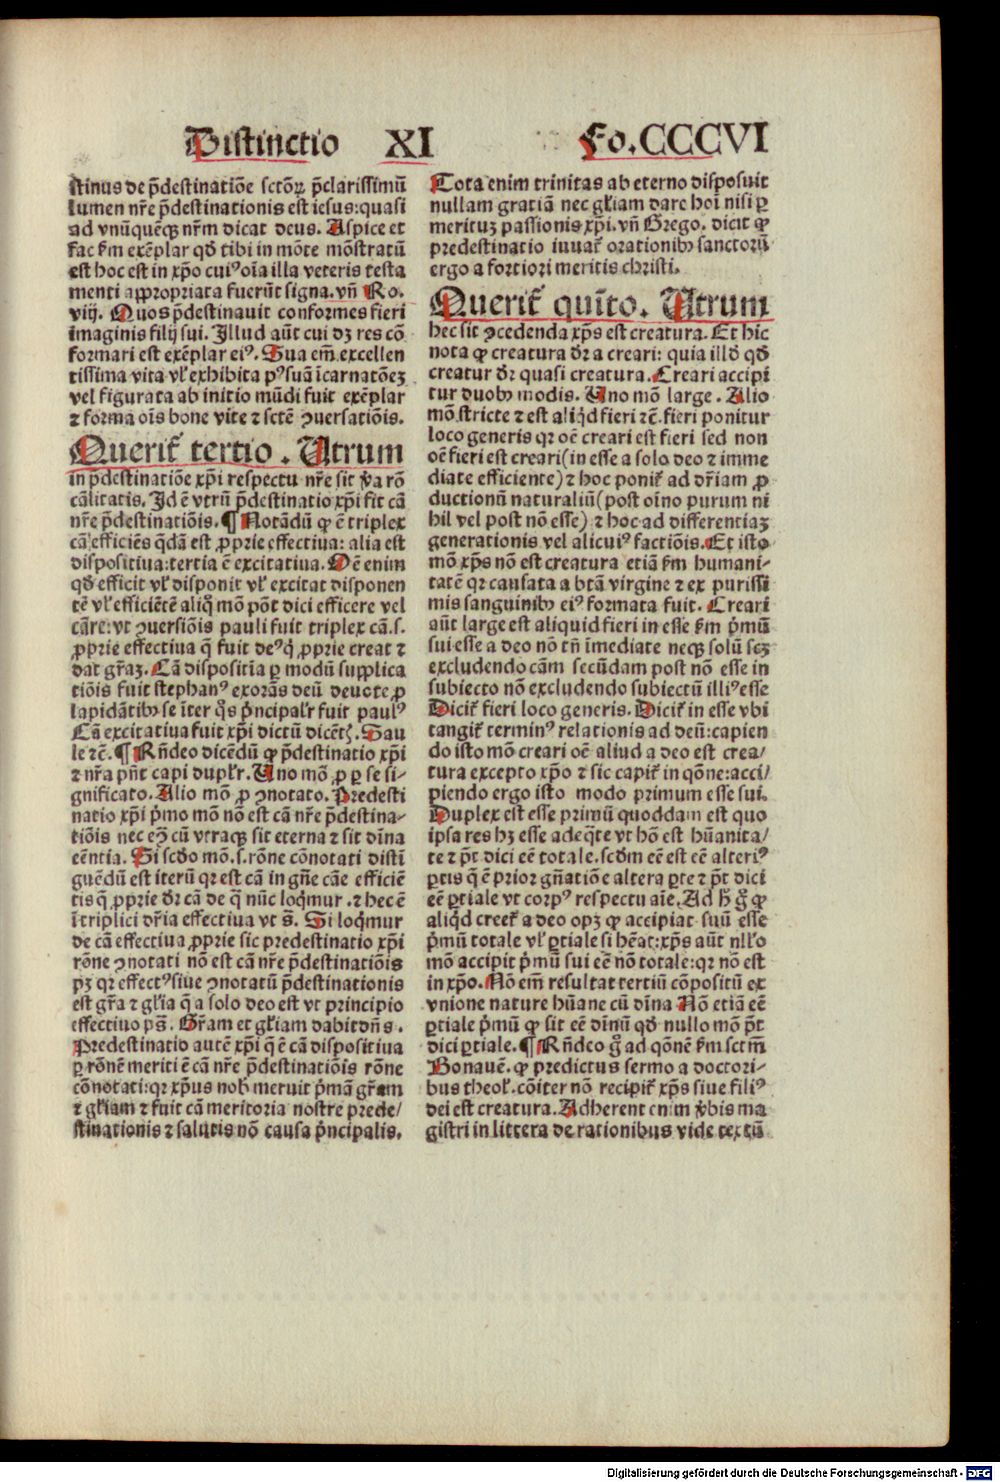 Distinctio XI Fo.CCCVI
stinus de p̄destinatiōe sctōꝝ p̄clarissimū
lumen nr̄e p̄destinationis est iesus:quasi
ad vnūquēqꝫ nr̄m dicat deus. Aspice et
fac ẜm exēplar qđ tibi in mōte mōstratū
est hoc est in xp̄o cuiꝰ oīa illa veteris testa
menti appropriata fuerūt signa.vn̄ Ro.
viij. Quos p̄destinauit conformes fieri
imaginis filij sui. Illud aūt cui dꝫ res cō
formari est exēplar eiꝰ. Sua em̄ excellen
tissima vita vł exhibita pꝰ suā īcarnatōeꝫ
vel figurata ab initio mūdi fuit exēplar
⁊ forma oīs bone vite ⁊ sctē ꝯuersatiōis.
Querit᷑ tertio. Utrum
in p̄destinatiōe xp̄i respectu nr̄e sit v̓a rō
cālitatis. Id ē vtrū p̄destinatio xp̄i sit cā
nr̄e p̄destinatiōis. ¶ Notādū ꝙ ē triplex
cā efficiēs q̄dā est ꝓprie effectiua: alia est
dispositiua:tertia ē excitatiua. Oē enim
qđ efficit vł disponit vł excitat disponen
tē vł efficiētē aliq̊ mō pōt dici efficere vel
cāre:vt ꝯuersiōis pauli fuit triplex cā.s.
ꝓprie effectiua q̄ fuit deꝰ q̇ ꝓprie creat ⁊
dat gr̄aꝫ. Cā dispositīa ꝑ modū supplica
tiōis fuit stephanꝰ exorās deū deuote ꝓ
lapidātibꝰ se īter q̊s p̓ncipalr̄ fuit paulꝰ
Cā excitatiua fuit xp̄i dictū dicētꝭ. Sau
le ⁊c̄. ¶ Rn̄deo dicēdū ꝙ p̄destinatio xp̄i
⁊ nr̄a pn̄t capi dupłr. Uno mō ꝓ ꝑ se si-
gnificato. Alio mō ꝓ ꝯnotato. Predesti
natio xp̄i p̓mo mō nō est cā nr̄e p̄destina-
tiōis nec eꝯ̄ cū vtraqꝫ sit eterna ⁊ sit dīna
eēntia. Si scd̓o mō.s.rōne cōnotati distī
guēdū est iterū qꝛ est cā in gn̄e cāe efficiē
tis q̄ ꝓprie dr̄ cā de q̄ nūc loq̄mur.⁊ hec ē
ī triplici dr̄ia effectiua vt s̄. Si loq̄mur
de cā effectiua ꝓprie sic predestinatio xp̄i
rōne ꝯnotati nō est cā nr̄e p̄destinatiōis
pꝫ qꝛ effectꝰ siue ꝯnotatū p̄destinationis
est gr̄a ⁊ gł̓ia q̄ a solo deo est vt principio
effectiuo ps̄. Gr̄am et gł̓iam dabit dn̄s.
Predestinatio autē xp̄i q̄ ē cā dispositiua
ꝑ rōnē meriti ē cā nr̄e p̄destinatiōis rōne
cōnotati:qꝛ xp̄us nob̄ meruit p̓mā gr̄am
⁊ gł̓iam ⁊ fuit cā meritoria nostre prede/
stinationis ⁊ salutis nō causa p̓ncipalis.
Tota enim trinitas ab eterno disposuit
nullam gratiā nec gł̓iam dare hoī nisi ꝑ
merituꝫ passionis xp̄i. vn̄ Grego. dicit ꝙ
predestinatio iuuat᷑ orationibꝰ sanctorū
ergo a fortiori meritis christi.
Querit᷑ quīto. Utrum
hec sit ꝯcedenda xp̄s est creatura. Et hic
nota ꝙ creatura dr̄ a creari: quia illđ qđ
creatur dr̄ quasi creatura. Creari accipi
tur duobꝰ modis. Uno mō large. Alio
mō stricte ⁊ est aliq̇d fieri ⁊c̄. fieri ponitur
loco generis qꝛ oē creari est fieri sed non
oē fieri est creari(in esse a solo deo ⁊ imme
diate efficiente) ⁊ hoc ponit᷑ ad dr̄iam ꝓ
ductionū naturaliū(post oīno purum ni
hil vel post nō esse) ⁊ hoc ad differentiaꝫ
generationis vel alicuiꝰ factiōis. Et isto
mō xp̄s nō est creatura etiā ẜm humani-
tatē qꝛ causata a btā virgine ⁊ ex purissi
mis sanguinibꝰ eiꝰ formata fuit. Creari
aūt large est aliquid fieri in esse ẜm p̓mū
sui esse a deo nō tn̄ īmediate neqꝫ solū scꝫ
excludendo cām secūdam post nō esse in
subiecto nō excludendo subiectū illiꝰ esse
Dicit᷑ fieri loco generis. Dicit᷑ in esse vbi
tangit᷑ terminꝰ relationis ad deū:capien
do isto mō creari oē aliud a deo est crea/
tura excepto xp̄o ⁊ sic capit᷑ in qōne:acci/
piendo ergo isto modo primum esse sui.
Duplex est esse primū quoddam est quo
ipsa res hꝫ esse adeq̄te vt hō est hūanita/
te ⁊ pt̄ dici eē totale.scd̓m eē est eē alteriꝰ
ꝑtis q̄ ē prior gn̄atiōe altera ꝑte ⁊ pt̄ dici
eē ꝑtiale vt corpꝰ respectu aīe. Ad h̄ g̊ ꝙ
aliq̇d creet᷑ a deo opꝫ ꝙ accipiat suū esse
p̓mū totale vł ꝑtiale si hēat:xp̄s aūt nłlo
mō accipit p̓mū sui eē nō totale:qꝛ nō est
in xp̄o. Nō em̄ resultat tertiū cōpositū ex
vnione nature hūane cū dīna Nō etiā eē
ꝑtiale p̓mū ꝙ sit eē dīnū qđ nullo mō pt̄
dici ꝑtiale. ¶ Rn̄deo g̊ ad qōnē ẜm sctm̄
Bonauē. ꝙ predictus sermo a doctori-
bus theoł. cōiter nō recipit᷑ xp̄s siue filiꝰ
dei est creatura. Adherent enim v̓bis ma
gistri in littera de rationibus vide textū
Digitalisierung gefördert durch die Deutsche Forschungsgemeinschaft - DFG